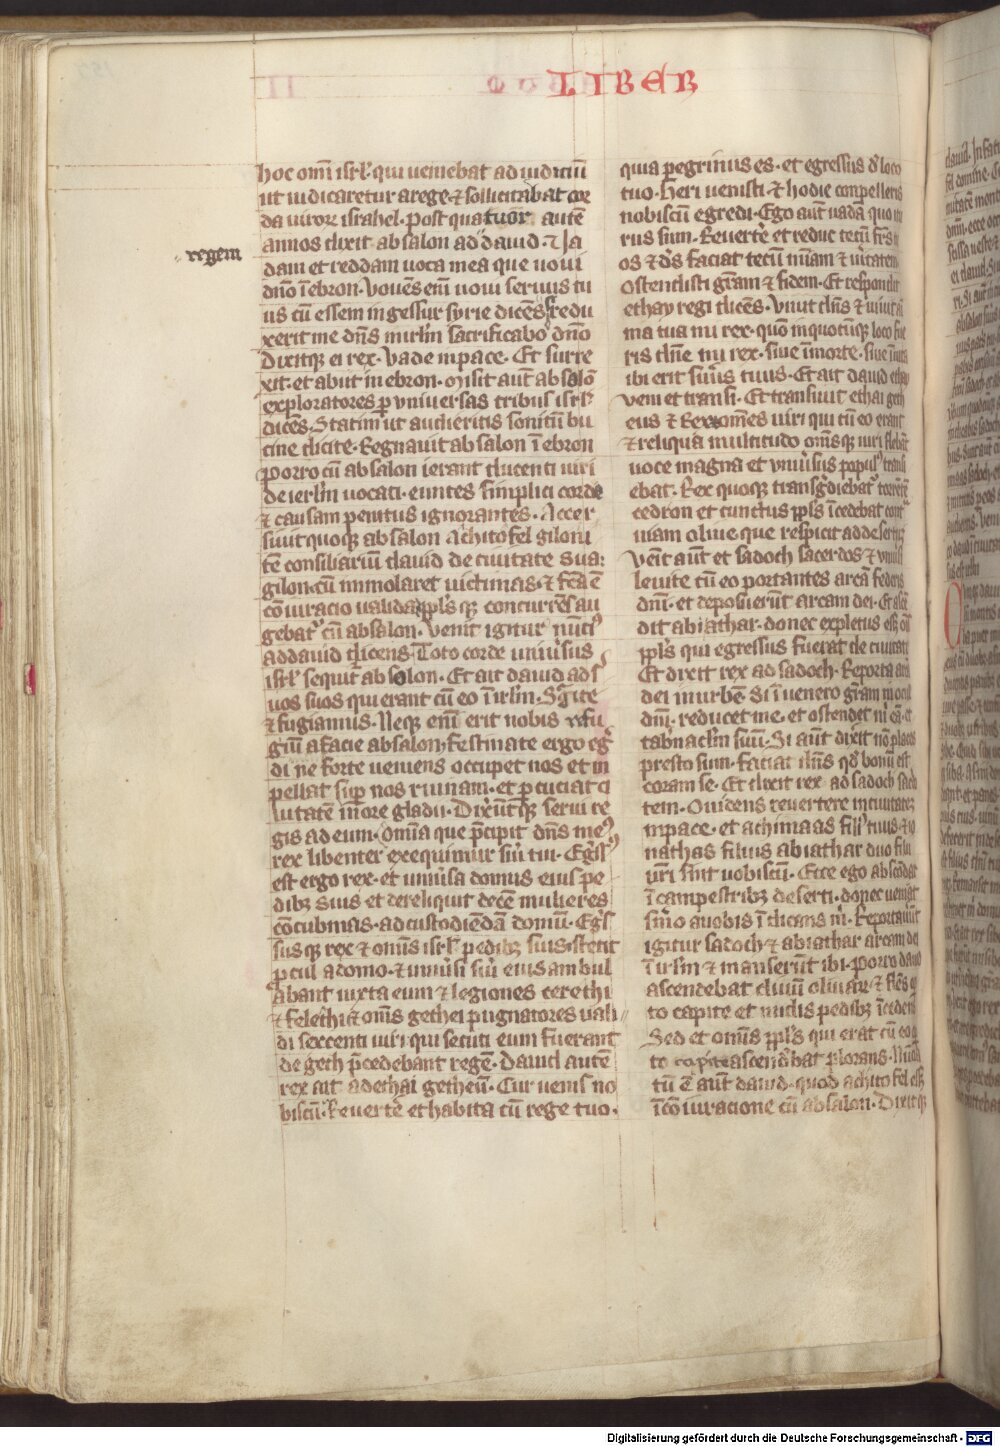 LIBER
hoc om̄i isrl̓ qui ueniebat ad iudiciū
ut iudicaretur a rege ⁊ sollicitabat cor
da uiroꝝ israhel. post quatuor autē
annos dixit absalon ad dauid. ⁊ Ua
regem
dam et reddam uota mea que uoui
dn̄o ī ebron. Vouēs em̄ uoui seruus tu
us cū essem in gessur syrie dicēs. si redu
xerit me dn̄s in irl̄m sacrificabo dn̄o
Dixitqꝫ ei rex. Vade in pace. Et surre
xit. et abiit in ebron. Misit aūt absolō
exploratores ꝑ vniuersas tribus isrl̓
dicēs. Statim ut audieritis sonitū bu
cine dicite. Regnauit absalon ī ebron
porro cū absalon ierant ducenti uiri
de ierl̄m uocati. euntes simplici corde
⁊ causam penitus ignorantes. Accer
siuit quoqꝫ absalon achitofel giloni
tē consiliariū dauid de ciuitate sua
gilon. cū immolaret uictimas. ⁊ fc̄a ē
cōiuracio ualida. ppl̓s qꝫ concurrēs au
gebat᷑ cū absalon. Venit igitur nūci᷒
ad dauid dicens. Toto corde uniu̓sus
isrl̓ sequit᷑ absolon. Et ait dauid ad s̓
uos suos qui erant cū eo ī irl̄m. Surgite
⁊ fugiamus. Neqꝫ em̄ erit nobis refu
giū a facie absalon. festinate ergo eg̓
di ne forte ueniens occupet nos et in
pellat suꝑ nos ruinam. et ꝑcuciat ci
uitatē in ore gladii. Dixer̄utqꝫ serui re
gis ad eum. Omīa que p̄cipit dn̄s me᷒
rex libenter exequimur sui̓ tui. Eg̓ss᷒
est ergo rex. et uniu̓sa domus eius pe
dibꝫ suis et dereliquit decē mulieres
cōcubinas. ad custodiendā domū. Eg̓s
susqꝫ rex ⁊ omīs isrl̓ pedibꝫ suis. stetit
ꝓcul a domo. ⁊ uniu̓si sui̓ eius ambul
abant iuxta eum ⁊ legiones cerethi
⁊ felethi ⁊ omīs gethei pugnatores uali
di sexcenti uiri qui secuti eum fuerant
de geth p̄cedebant regē. Dauid autē
rex ait ad ethai getheū. Cur uenis no
biscū. Reuertē et habita cū rege tuo.
quia pegrinus es. et egressus d̓ loco
tuo. heri uenisti ⁊ hodie compelleris
nobiscū egredi. Ego aūt uadā quo itu
rus sum. Reuertē et reduc tecū fr̄s
os ⁊ dn̄s faciat tecū mīam ⁊ ui̓tatem
Ostendisti gr̄am ⁊ fidem. Et respondit
ethay regi dicēs. Viuit dn̄s ⁊ uiuit ā
ma tua mi rex. quō in quocūqꝫ loco fue
ris dn̄e mi rex. siue ī morte. siue ī uita
ibi erit seru̓us tuus. Et ait dauid ethay
veni et transi. Et transiuit ethai geth
eus ⁊ Rex omēs uiri qui cū eo erant
⁊ reliqua multitudo omēsqꝫ uiri flebāt
uoce magna et vniu̓sus popul᷒ transi
ebat. Rex quoqꝫ transg̓diebat᷑ torrētē
cedron et cunctus ppl̓s īcedebat cont̓
uiam oliue que respicit ad desertū
venit aūt et sadoch sacerdos ⁊ vniu̓si
leuite cū eo portantes arcā federis
dn̄i. et deposuer̄ut arcam dei. Et ascē
dit abiathar. donec expletus esꝫ om̄
ppl̓s qui egressus fuerat de ciuitate
Et dixit rex ad sadoch. Reporta arcā
dei in urbē. Si īuenero gr̄am in oculis
dn̄i. reducet me. et ostendet m̓ eā. et
tab̓naclm̄ suū. Si aūt dixit nō places
presto sum. faciat dn̄s qd̓ bonū est
coram se. Et dixit rex ad sadoch sacer
tem. O uidens reuertere in ciuitatē
in pace. et achimaas fili᷒ tuus. ⁊ io
nathas filius abiathar duo filii
ur̄i sint uobiscū. Ecce ego abscōdar
ī campestribꝫ deserti. donec ueniat
sm̓o a uobis īdicans m̓. Reportauit
igitur sadoch ⁊ abiathar arcam dei
ī irl̄m ⁊ manser̄ut ibi. porro dauid
ascendebat cliuū oliuaꝝ. ⁊ flēs op
to capite et nudis pedibꝫ īcedens
Sed et omīs ppl̓s qui erat cū eo op
to capite ascend̓bat plorans. Nūcia
tū ē aūt dauid. quod achitofel esꝫ
ī cōiuracione cū absalon. Dixitqꝫ
Digitalisierung gefördert durch die Deutsche Forschungsgemeinschaft - DFG